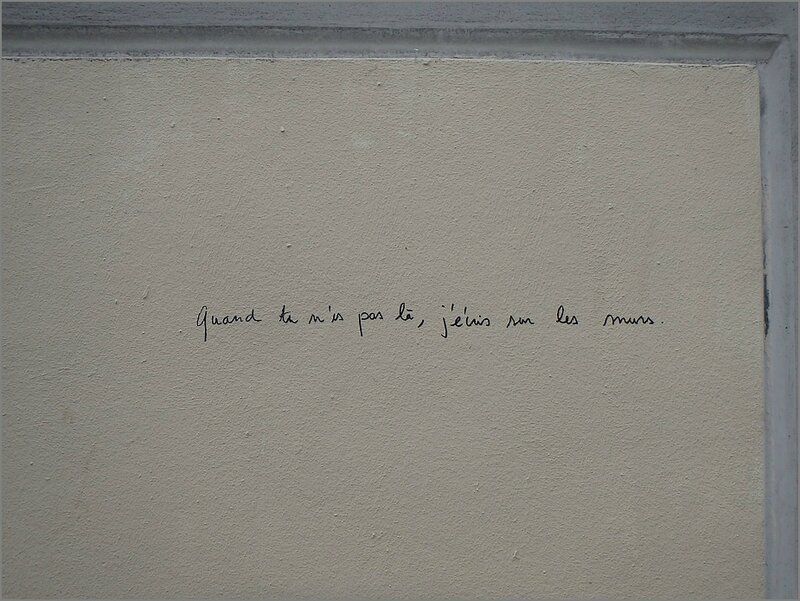 Quand tu n'es pas là, j'écris sur les murs.